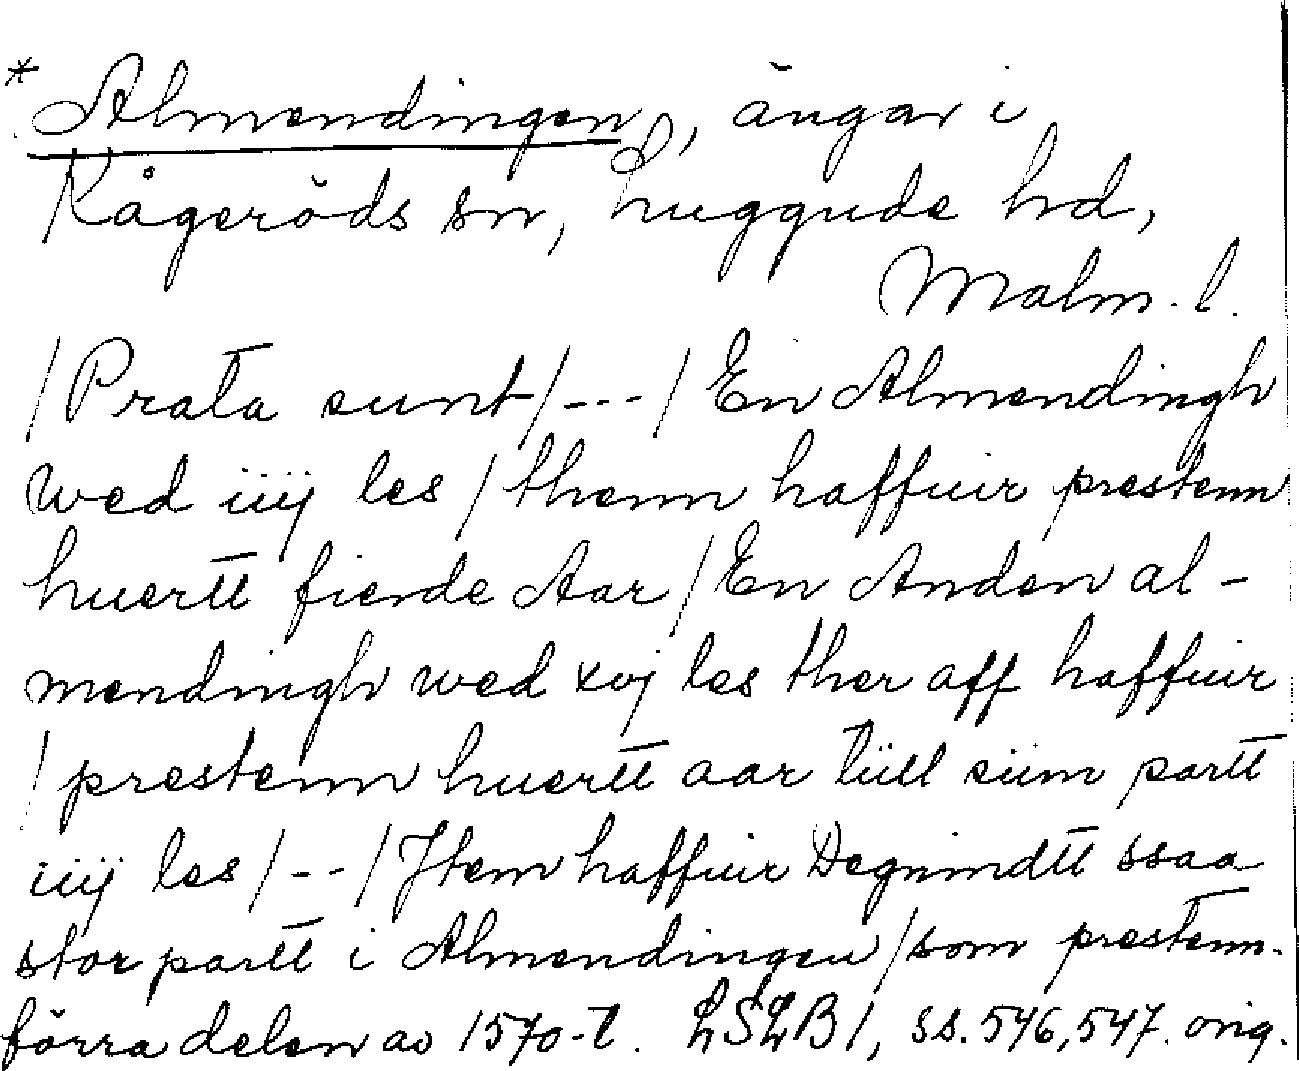 * Almendingen, ängar i
Kågeröds sn, Luggude hd,
Malm. l.
/ Prata sunt / --- / En Almendingh
wed iiij les / thenn haffuir prestenn
huertt fierde Aar / En Anden al-
mendingh wed xvj les ther aff haffuir
/ prestenn huertt aar tiill siinn partt
iiij les / -- / Jtem haffuir Degnindtt ssaa
stor partt i Almendingen / som prestenn.
förra delen av 1570-t. LSLB 1, ss. 546, 547. orig.